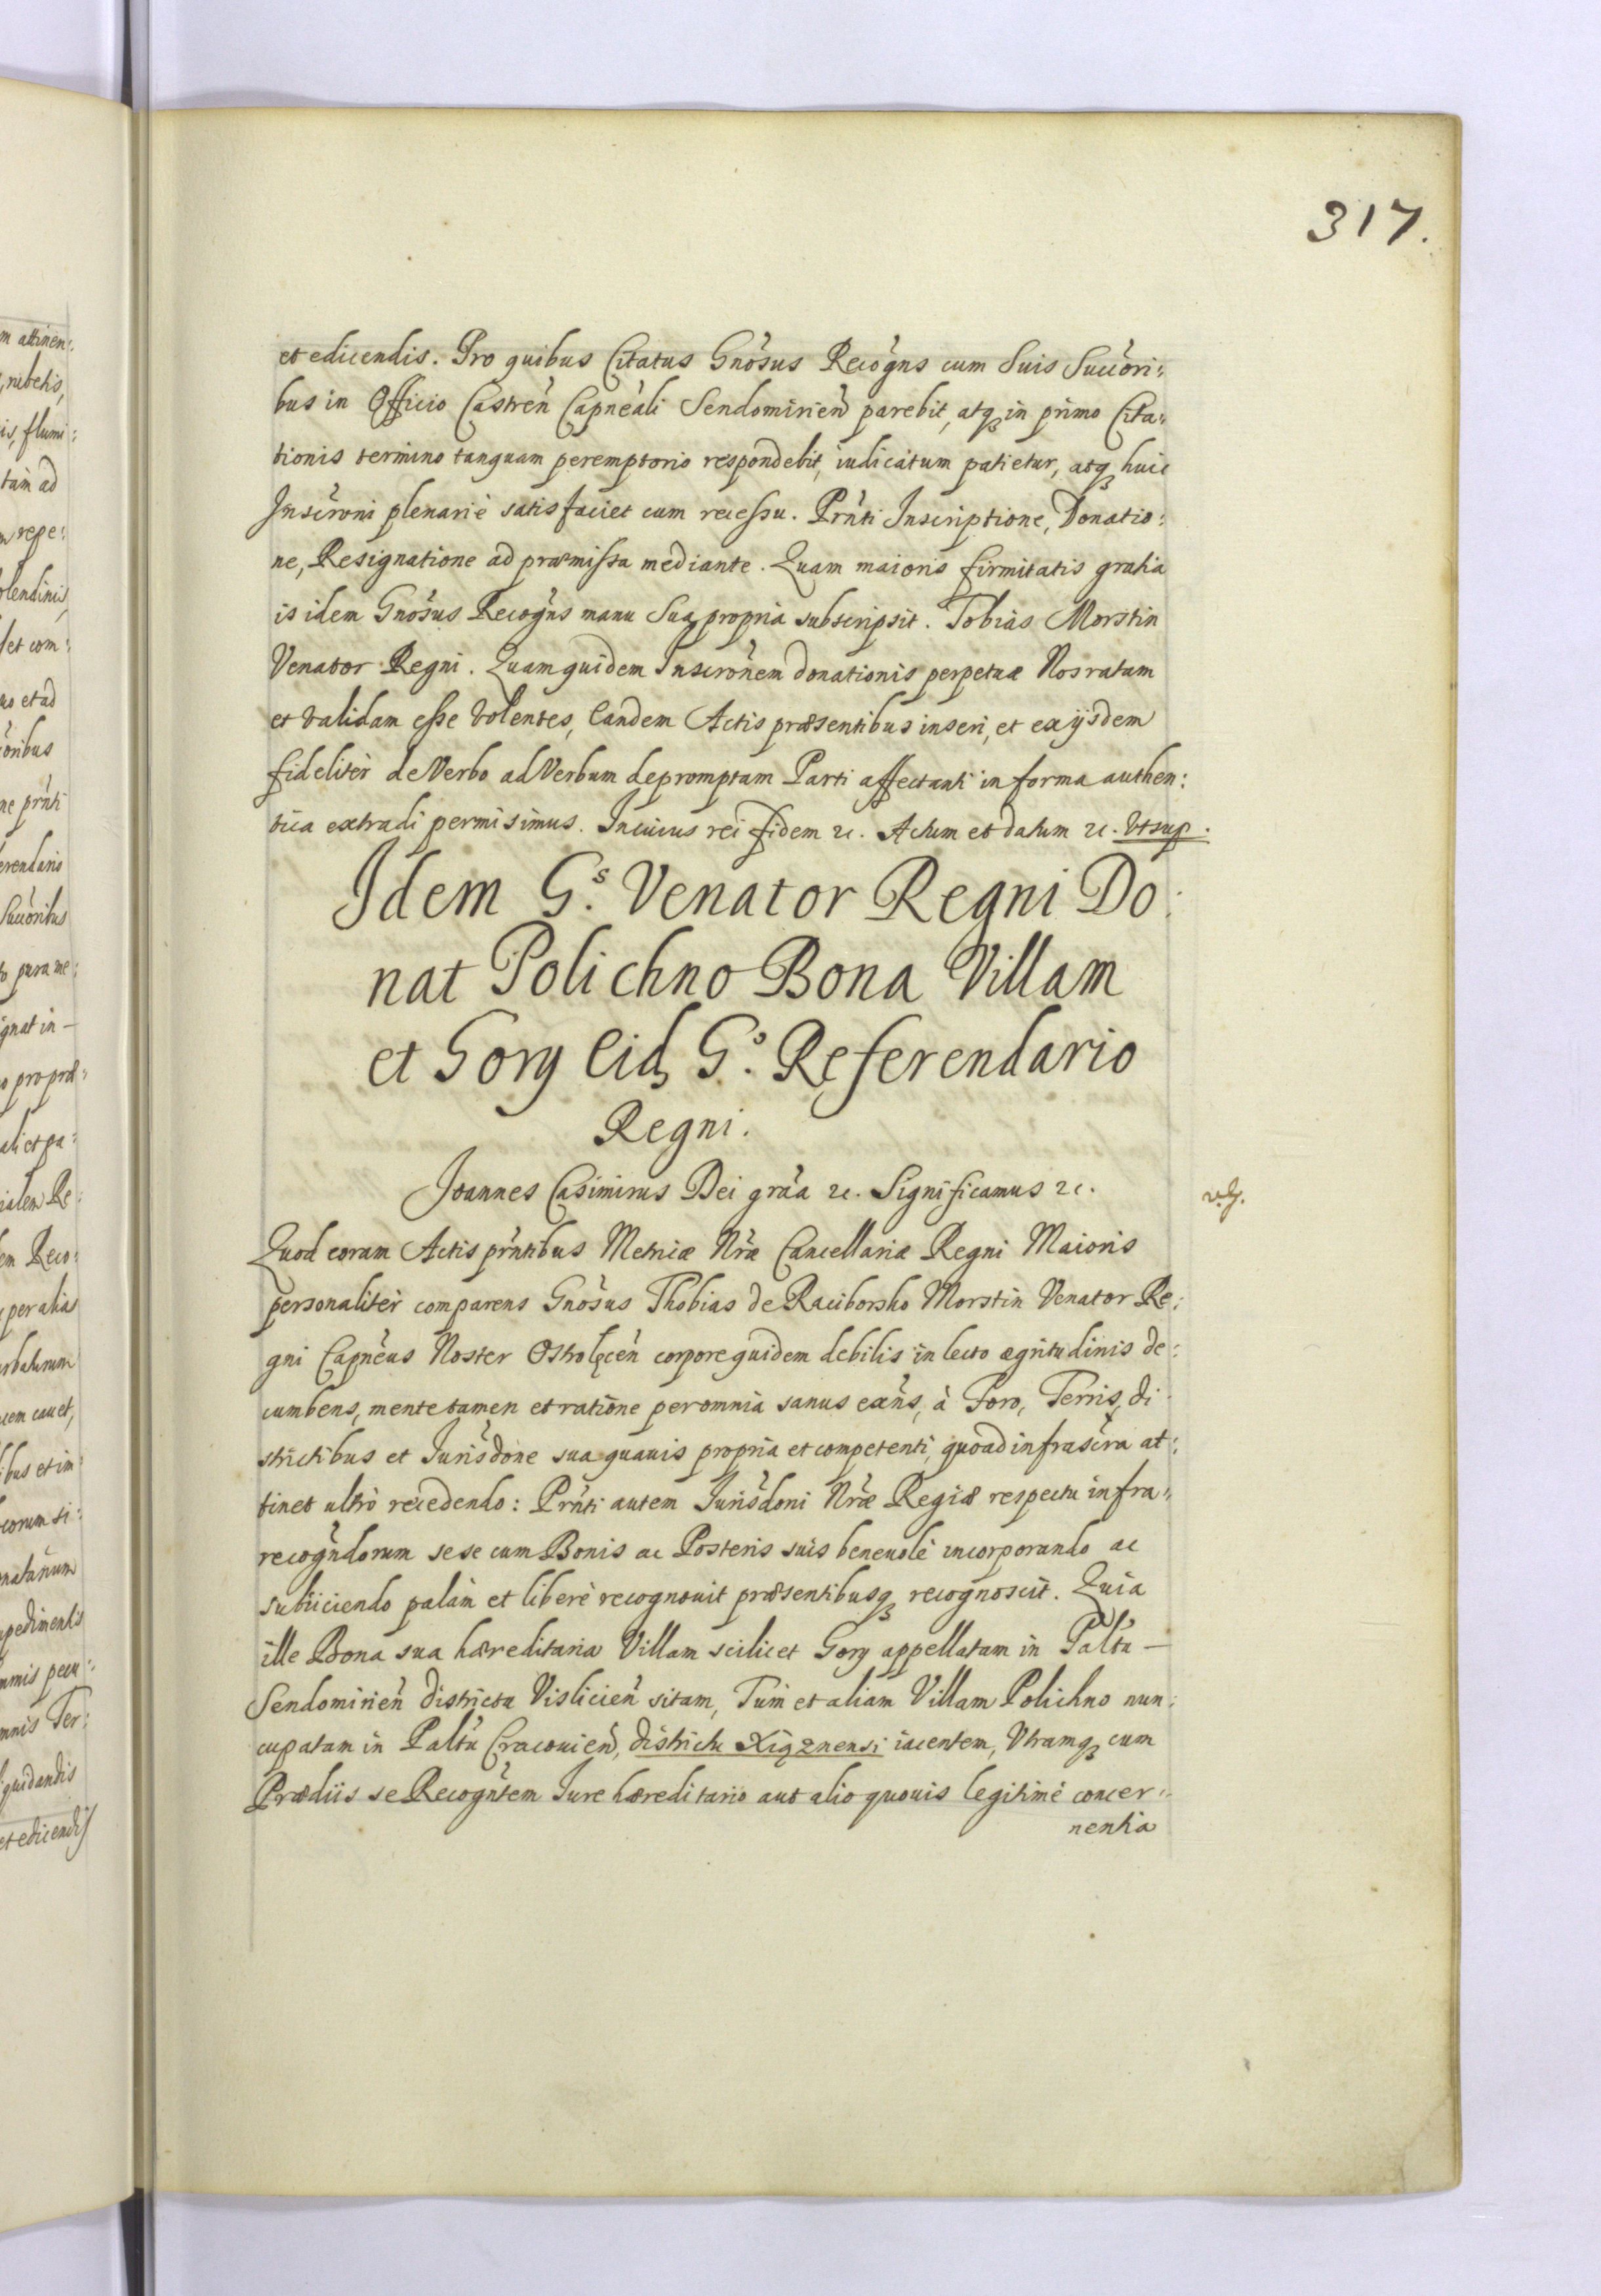 317.
et edicendis. Pro quibus Citatus Gnõsus Recogñs cum Suis Succõri:
bus in Officio Castreñ Capneãli Sendomirieñ parebit, atq₃ in primo Cita:
tionis termino tanquam peremptorio respondebit, iudicatum patietur, atq₃ huic
Inscr̃oni plenariè satisfaciet cum recessu. Prñti Inscriptione, Donatio:
ne, Resignatione ad præmissa mediante. Quam maioris firmitatis gratia
is idem Gnõsus Recogñs manu Sua propria subscripsit. Tobias Morstin
Venator Regni. Quam quidem Inscrõnem donationis perpetuæ Nos ratam
et validam esse Volentes, Eandem Actis præsentibus inseri, et ex ijsdem
fideliter de Verbo ad Verbum depromptam Parti affectanti in forma authen:
tica extradi permisimus. In cuius rei fidem ꝛc. Actum et datum ꝛc. Vt sup.
Idem G.s Venator Regni Do:
nat Polichno Bona Villam
et Gory Eid₃ G.o Referendario
Regni.
Joannes Casimirus Dei grãa ꝛc. Significamus ꝛc.
Quod coram Actis prñtibus Metricæ Nr̃æ Cancellariæ Regni Maioris
personalitèr comparens Gnõsus Thobias de Raciborsko Morstin Venator Re:
gni Capnẽus Noster Ostrolęceñ corpore quidem debilis in lecto ægritudinis de:
cumbens, mente tamen et ratione per omnia sanus exñs, à Foro, Terris, di
strictibus et Jurisdõne sua quauis propria et competenti, quoad infrascr̃a at:
tinet ultrò recedendo: Prñti autem Jurisdõni Nr̃æ Regiæ respectu infra:
recogñdorum sese cum Bonis ac Posteris suis beneuolè incorporando ac
subiiciendo palàm et liberè recognouit præsentibusq₃ recognoscit. Quia
ille Bona sua hæreditaria Villam scilicet Gory appellatam in Paltũ –
Sendomirieñ districtu Vislicieñ sitam, Tum et aliam Villam Polichno nun:
cupatam in Paltũ Cracouieñ, districtu Xiąznensi iacentem, Vtramq₃ cum
Prædiis se Recogñtem Jure hæreditario aut alio quouis legitimè concer:
nentia